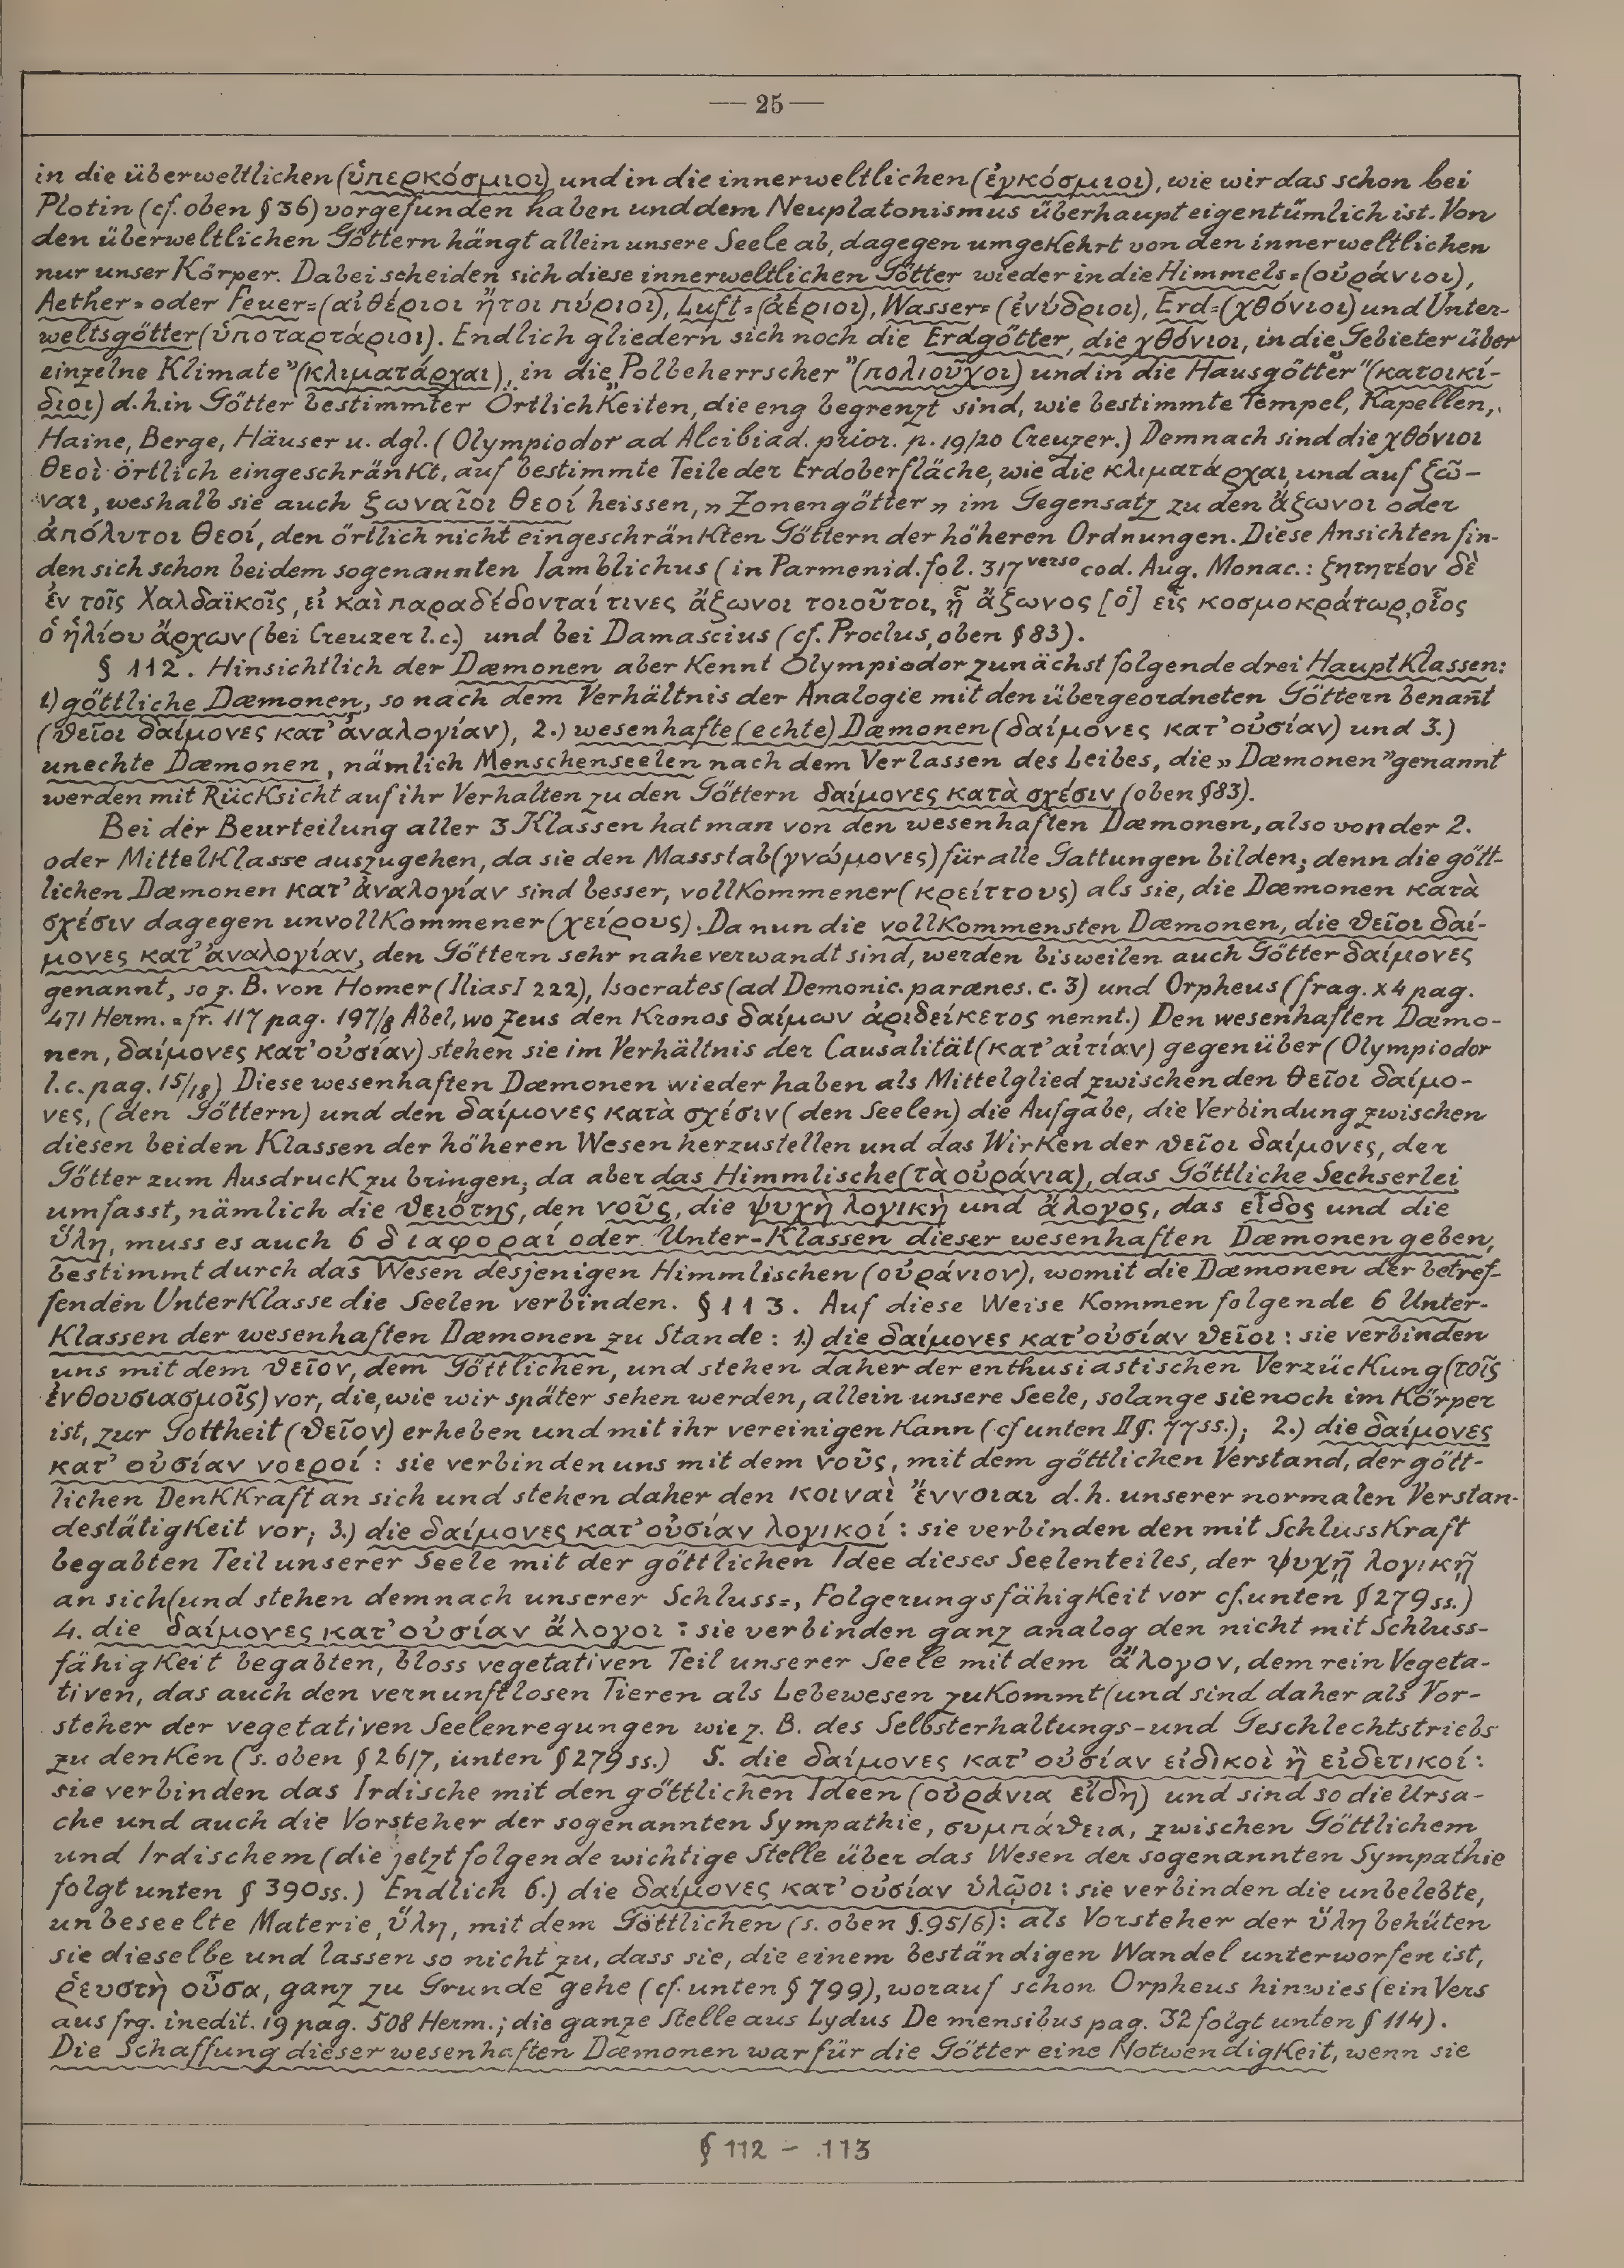 — 25 —
in die überweltlichen (ὑπερκόσμιοι) und in die innerweltlichen (ἐγκόσμιοι), wie wir das schon bei
Plotin (cf. oben § 36) vorgefunden haben und dem Neuplatonismus überhaupt eigentümlich ist. Von
den überweltlichen Göttern hängt allein unsere Seele ab, dagegen umgekehrt von den innerweltlichen
nur unser Körper. Dabei scheiden sich diese innerweltlichen Götter wieder in die Himmels= (οὐράνιοι),
Aether= oder Feuer= (αἰθέριοι ἤτοι πύριοι), Luft= (ἀέριοι), Wasser= (ἐνύδριοι), Erd= (χθόνιοι) und Unter-
weltsgötter (ὑποταρτάριοι). Endlich gliedern sich noch die Erdgötter, die χθόνιοι, in die „Gebieter über
einzelne Klimate" (κλιματάρχαι), in die „Polbeherrscher" (πολιοῦχοι) und in die Hausgötter" (κατοικί-
διοι) d. h. in Götter bestimmter Örtlichkeiten, die eng begrenzt sind, wie bestimmte Tempel, Kapellen,
Haine, Berge, Häuser u. dgl. (Olympiodor ad Alcibiad. prior. p. 19/20 Creuzer.) Demnach sind die χθόνιοι
θεοὶ örtlich eingeschränkt, auf bestimmte Teile der Erdoberfläche, wie die κλιματάρχαι, und auf ζῶ-
ναι, weshalb sie auch ζωναῖοι θεοί heissen, „Zonengötter„ im Gegensatz zu den ἄζωνοι oder
ἀπόλυτοι θεοί, den örtlich nicht eingeschränkten Göttern der höheren Ordnungen. Diese Ansichten fin-
den sich schon bei dem sogenannten Iamblichus (in Parmenid. fol. 317 verso cod. Aug. Monac.: ζητητέον δὲ
ἐν τοῖς Χαλδαϊκοῖς, εἰ καὶ παραδέδονταί τινες ἄζωνοι τοιοῦτοι, ᾗ ἄζωνος [ὁ] εἷς κοσμοκράτωρ, οἷος
ὁ ἡλίου ἄρχων (bei Creuzer l. c.) und bei Damascius (cf. Proclus, oben § 83).
§ 112. Hinsichtlich der Dæmonen aber kennt Olympiodor zunächst folgende drei Hauptklassen:
1.) göttliche Dæmonen, so nach dem Verhältnis der Analogie mit den übergeordneten Göttern benan̄t
(θεῖοι δαίμονες κατ' ἀναλογίαν), 2.) wesenhafte (echte) Dæmonen (δαίμονες κατ' οὐσίαν) und 3.)
unechte Dæmonen, nämlich Menschenseelen nach dem Verlassen des Leibes, die „Dæmonen" genannt
werden mit Rücksicht auf ihr Verhalten zu den Göttern δαίμονες κατὰ σχέσιν (oben § 83).
Bei der Beurteilung aller 3 Klassen hat man von den wesenhaften Dæmonen, also von der 2.
oder Mittelklasse auszugehen, da sie den Massstab (γνώμονες) für alle Gattungen bilden; denn die gött-
lichen Dæmonen κατ' ἀναλογίαν sind besser, vollkommener (κρείττους) als sie, die Dæmonen κατὰ
σχέσιν dagegen unvollkommener (χείρους). Da nun die vollkommensten Dæmonen, die θεῖοι δαί-
μονες κατ' ἀναλογίαν, den Göttern sehr nahe verwandt sind, werden bisweilen auch Götter δαίμονες
genannt, so z. B. von Homer (Ilias I 222), Isocrates (ad Demonic. parænes. c. 3) und Orpheus (frag. X 4 pag.
471 Herm. = fr. 117 pag. 197/8 Abel, wo Zeus den Kronos δαίμων ἀριδείκετος nennt.) Den wesenhaften Dæmo-
nen, δαίμονες κατ' οὐσίαν) stehen sie im Verhältnis der Causalität (κατ' αἰτίαν) gegenüber (Olympiodor
l. c. pag. 15/18) Diese wesenhaften Dæmonen wieder haben als Mittelglied zwischen den θεῖοι δαίμο-
νες, (den Göttern) und den δαίμονες κατὰ σχέσιν (den Seelen) die Aufgabe, die Verbindung zwischen
diesen beiden Klassen der höheren Wesen herzustellen und das Wirken der θεῖοι δαίμονες, der
Götter zum Ausdruck zu bringen; da aber das Himmlische (τὰ οὐράνια), das Göttliche Sechserlei
umfasst, nämlich die θειότης, den νοῦς, die ψυχὴ λογικὴ und ἄλογος, das εἶδος und die
ὕλη, muss es auch 6 διαφοραί oder Unter-Klassen dieser wesenhaften Dæmonen geben,
bestimmt durch das Wesen desjenigen Himmlischen (οὐράνιον), womit die Dæmonen der betref-
fenden Unterklasse die Seelen verbinden. § 113. Auf diese Weise kommen folgende 6 Unter-
Klassen der wesenhaften Dæmonen zu Stande: 1.) die δαίμονες κατ' οὐσίαν θεῖοι: sie verbinden
uns mit dem θεῖον, dem Göttlichen, und stehen daher der enthusiastischen Verzückung (τοῖς
ἐνθουσιασμοῖς) vor, die, wie wir später sehen werden, allein unsere Seele, solange sie noch im Körper
ist, zur Gottheit (θεῖον) erheben und mit ihr vereinigen kann (cf unten II §. 77 ss.); 2.) die δαίμονες
κατ' οὐσίαν νοεροί: sie verbinden uns mit dem νοῦς, mit dem göttlichen Verstand, der gött-
lichen Denkkraft an sich und stehen daher den κοιναὶ ἔννοιαι d. h. unserer normalen Verstan-
destätigkeit vor; 3.) die δαίμονες κατ' οὐσίαν λογικοί: sie verbinden den mit Schlusskraft
begabten Teil unserer Seele mit der göttlichen Idee dieses Seelenteiles, der ψυχῇ λογικῇ
an sich (und stehen demnach unserer Schluss=, Folgerungsfähigkeit vor cf. unten § 279 ss.)
4. die δαίμονες κατ' οὐσίαν ἄλογοι: sie verbinden ganz analog den nicht mit Schluss-
fähigkeit begabten, bloss vegetativen Teil unserer Seele mit dem ἄλογον, dem rein Vegeta-
tiven, das auch den vernunftlosen Tieren als Lebewesen zukommt (und sind daher als Vor-
steher der vegetativen Seelenregungen wie z. B. des Selbsterhaltungs- und Geschlechtstriebs
zu denken (s. oben § 26/7, unten § 279 ss.) 5. die δαίμονες κατ' οὐσίαν εἰδικοὶ ἢ εἰδετικοί:
sie verbinden das Irdische mit den göttlichen Ideen (οὐράνια εἴδη) und sind so die Ursa-
che und auch die Vorsteher der sogenannten Sympathie, συμπάθεια, zwischen Göttlichem
und Irdischem (die jetzt folgende wichtige Stelle über das Wesen der sogenannten Sympathie
folgt unten § 390 ss.) Endlich 6.) die δαίμονες κατ' οὐσίαν ὑλῷοι: sie verbinden die unbelebte,
unbeseelte Materie, ὕλη, mit dem Göttlichen (s. oben §. 95/6): als Vorsteher der ὕλη behüten
sie dieselbe und lassen so nicht zu, dass sie, die einem beständigen Wandel unterworfen ist,
ῥευστὴ οὖσα, ganz zu Grunde gehe (cf. unten § 799), worauf schon Orpheus hinwies (ein Vers
aus frg. inedit. 19 pag. 508 Herm.; die ganze Stelle aus Lydus De mensibus pag. 32 folgt unten § 114).
Die Schaffung dieser wesenhaften Dæmonen war für die Götter eine Notwendigkeit, wenn sie
§ 112 - 113